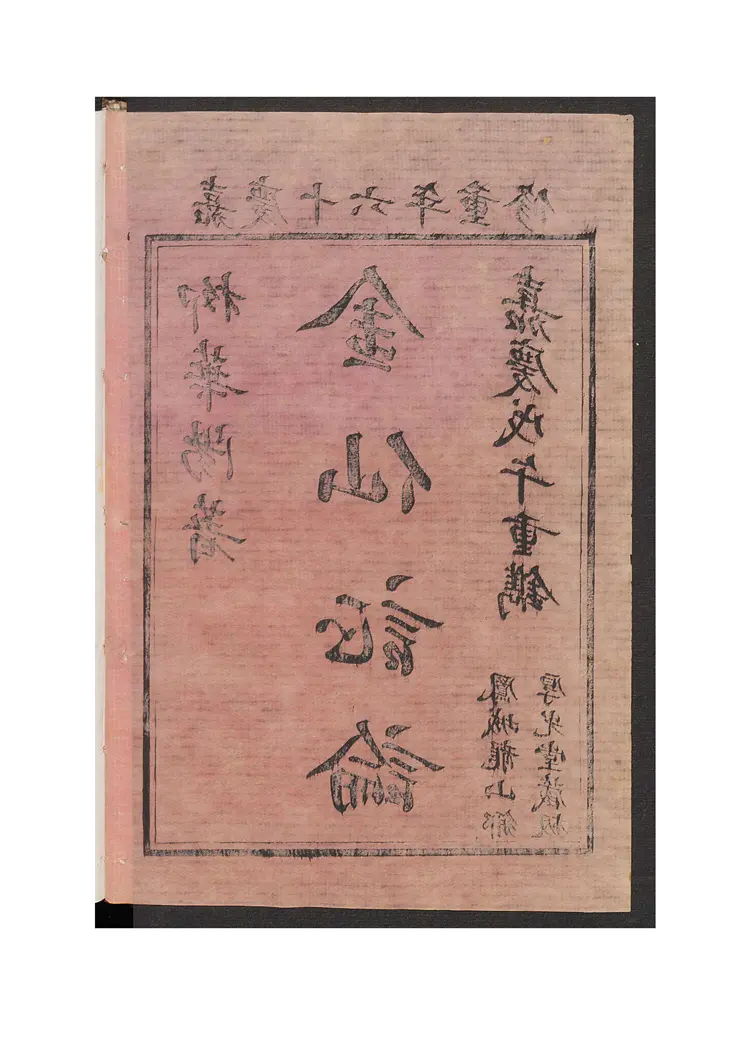 嘉慶十六年重修
柳華陽著
金仙証論
嘉慶戊午重鐫
鳳城龍山鄉
厚堂藏板